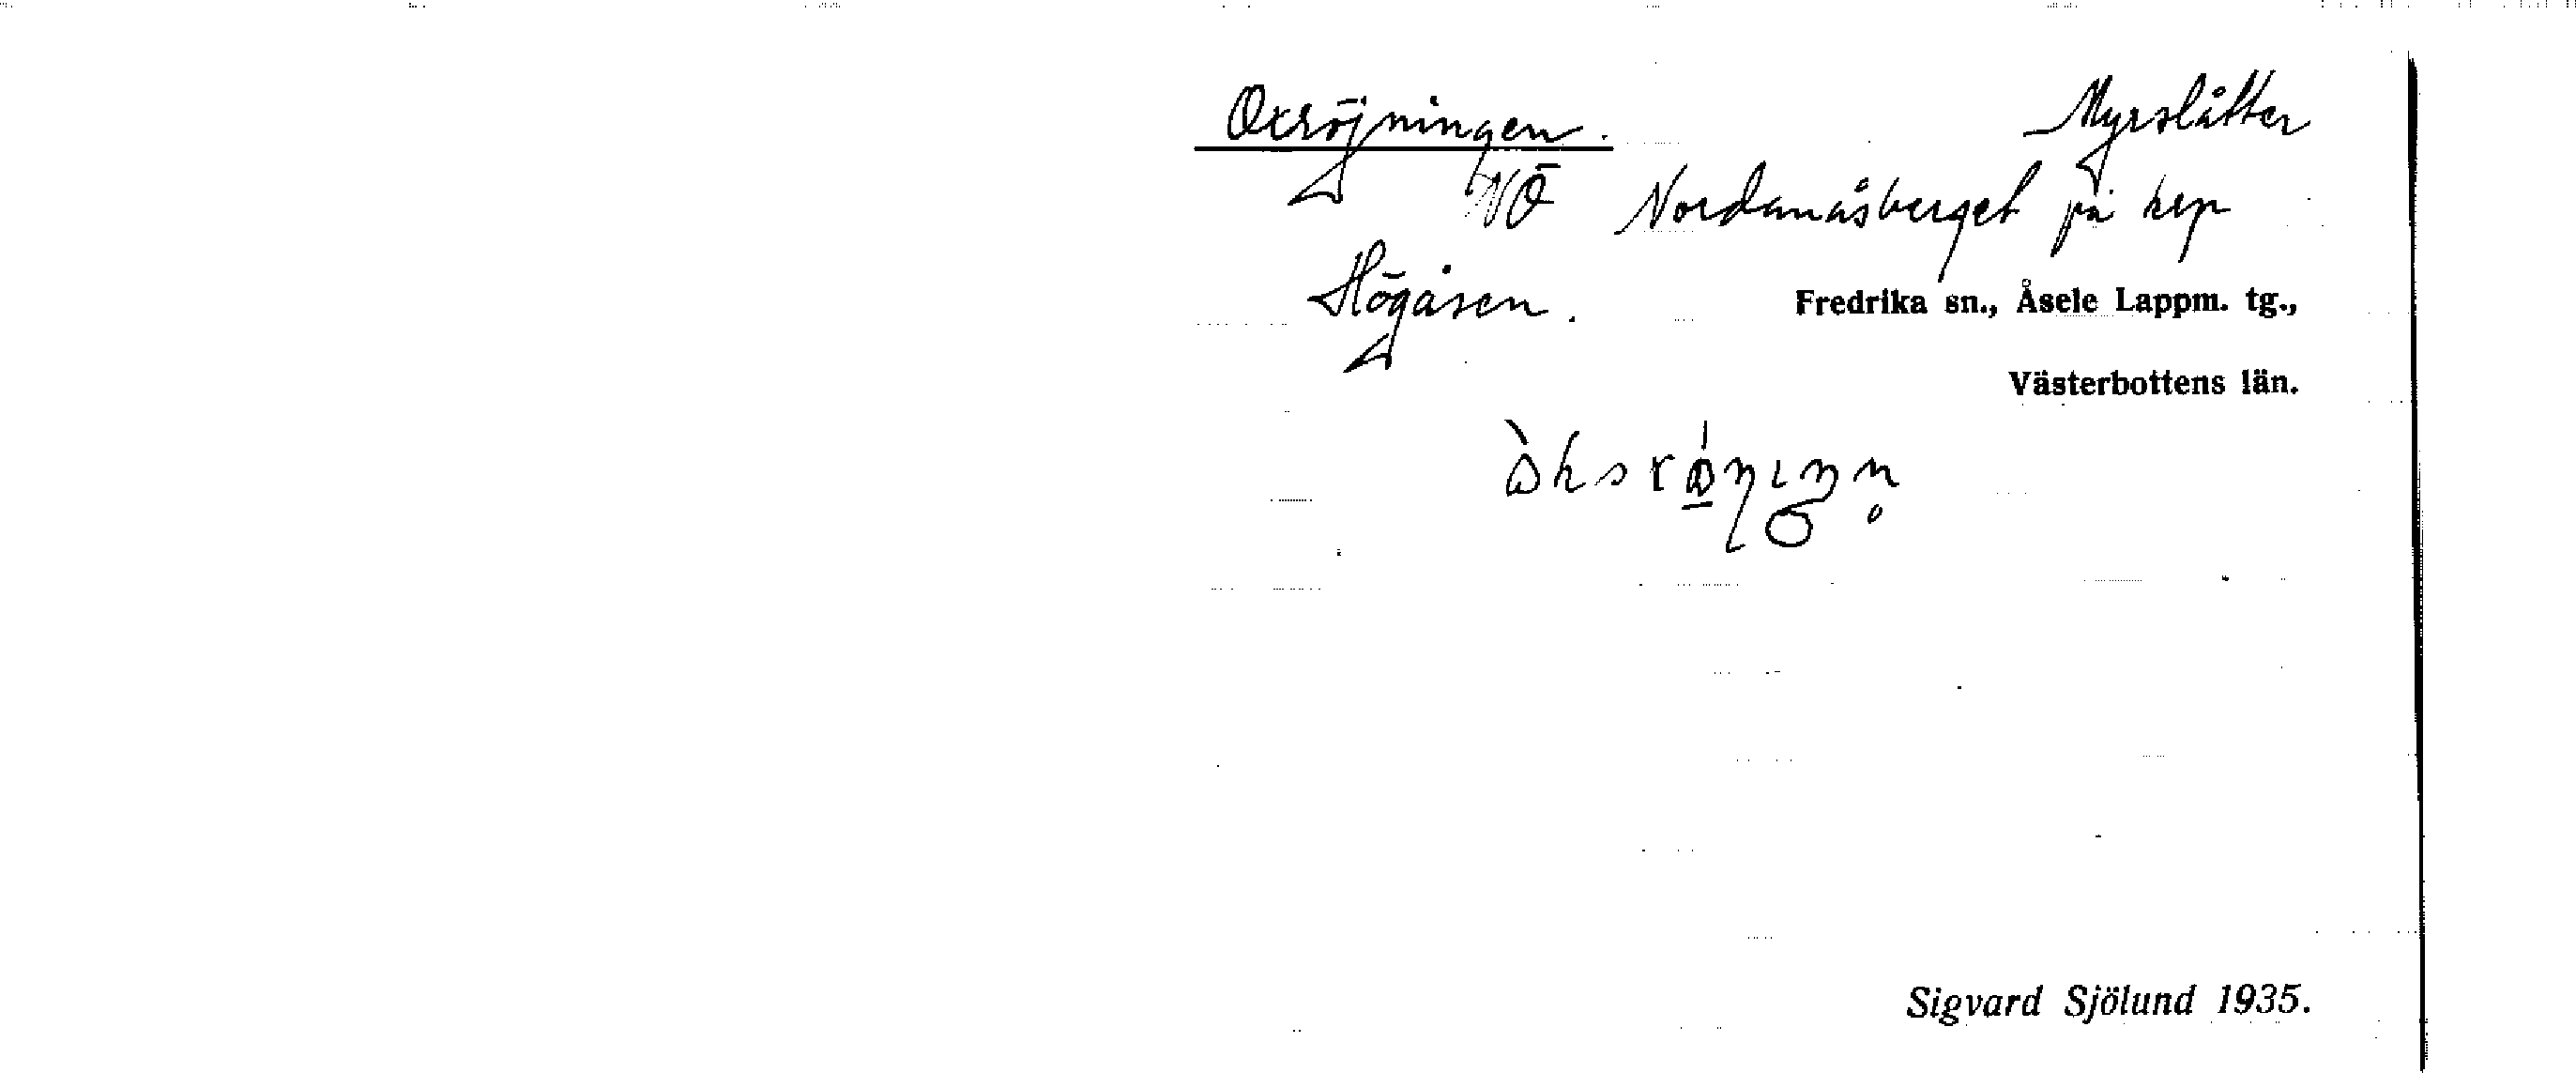 Oxröjningen. Myrslåtter
NÖ Nordanåsberget på hp
Högåsen. Fredrika sn., Åsele Lappm. tg.,
Västerbottens län.
Sigvard Sjölund 1935.